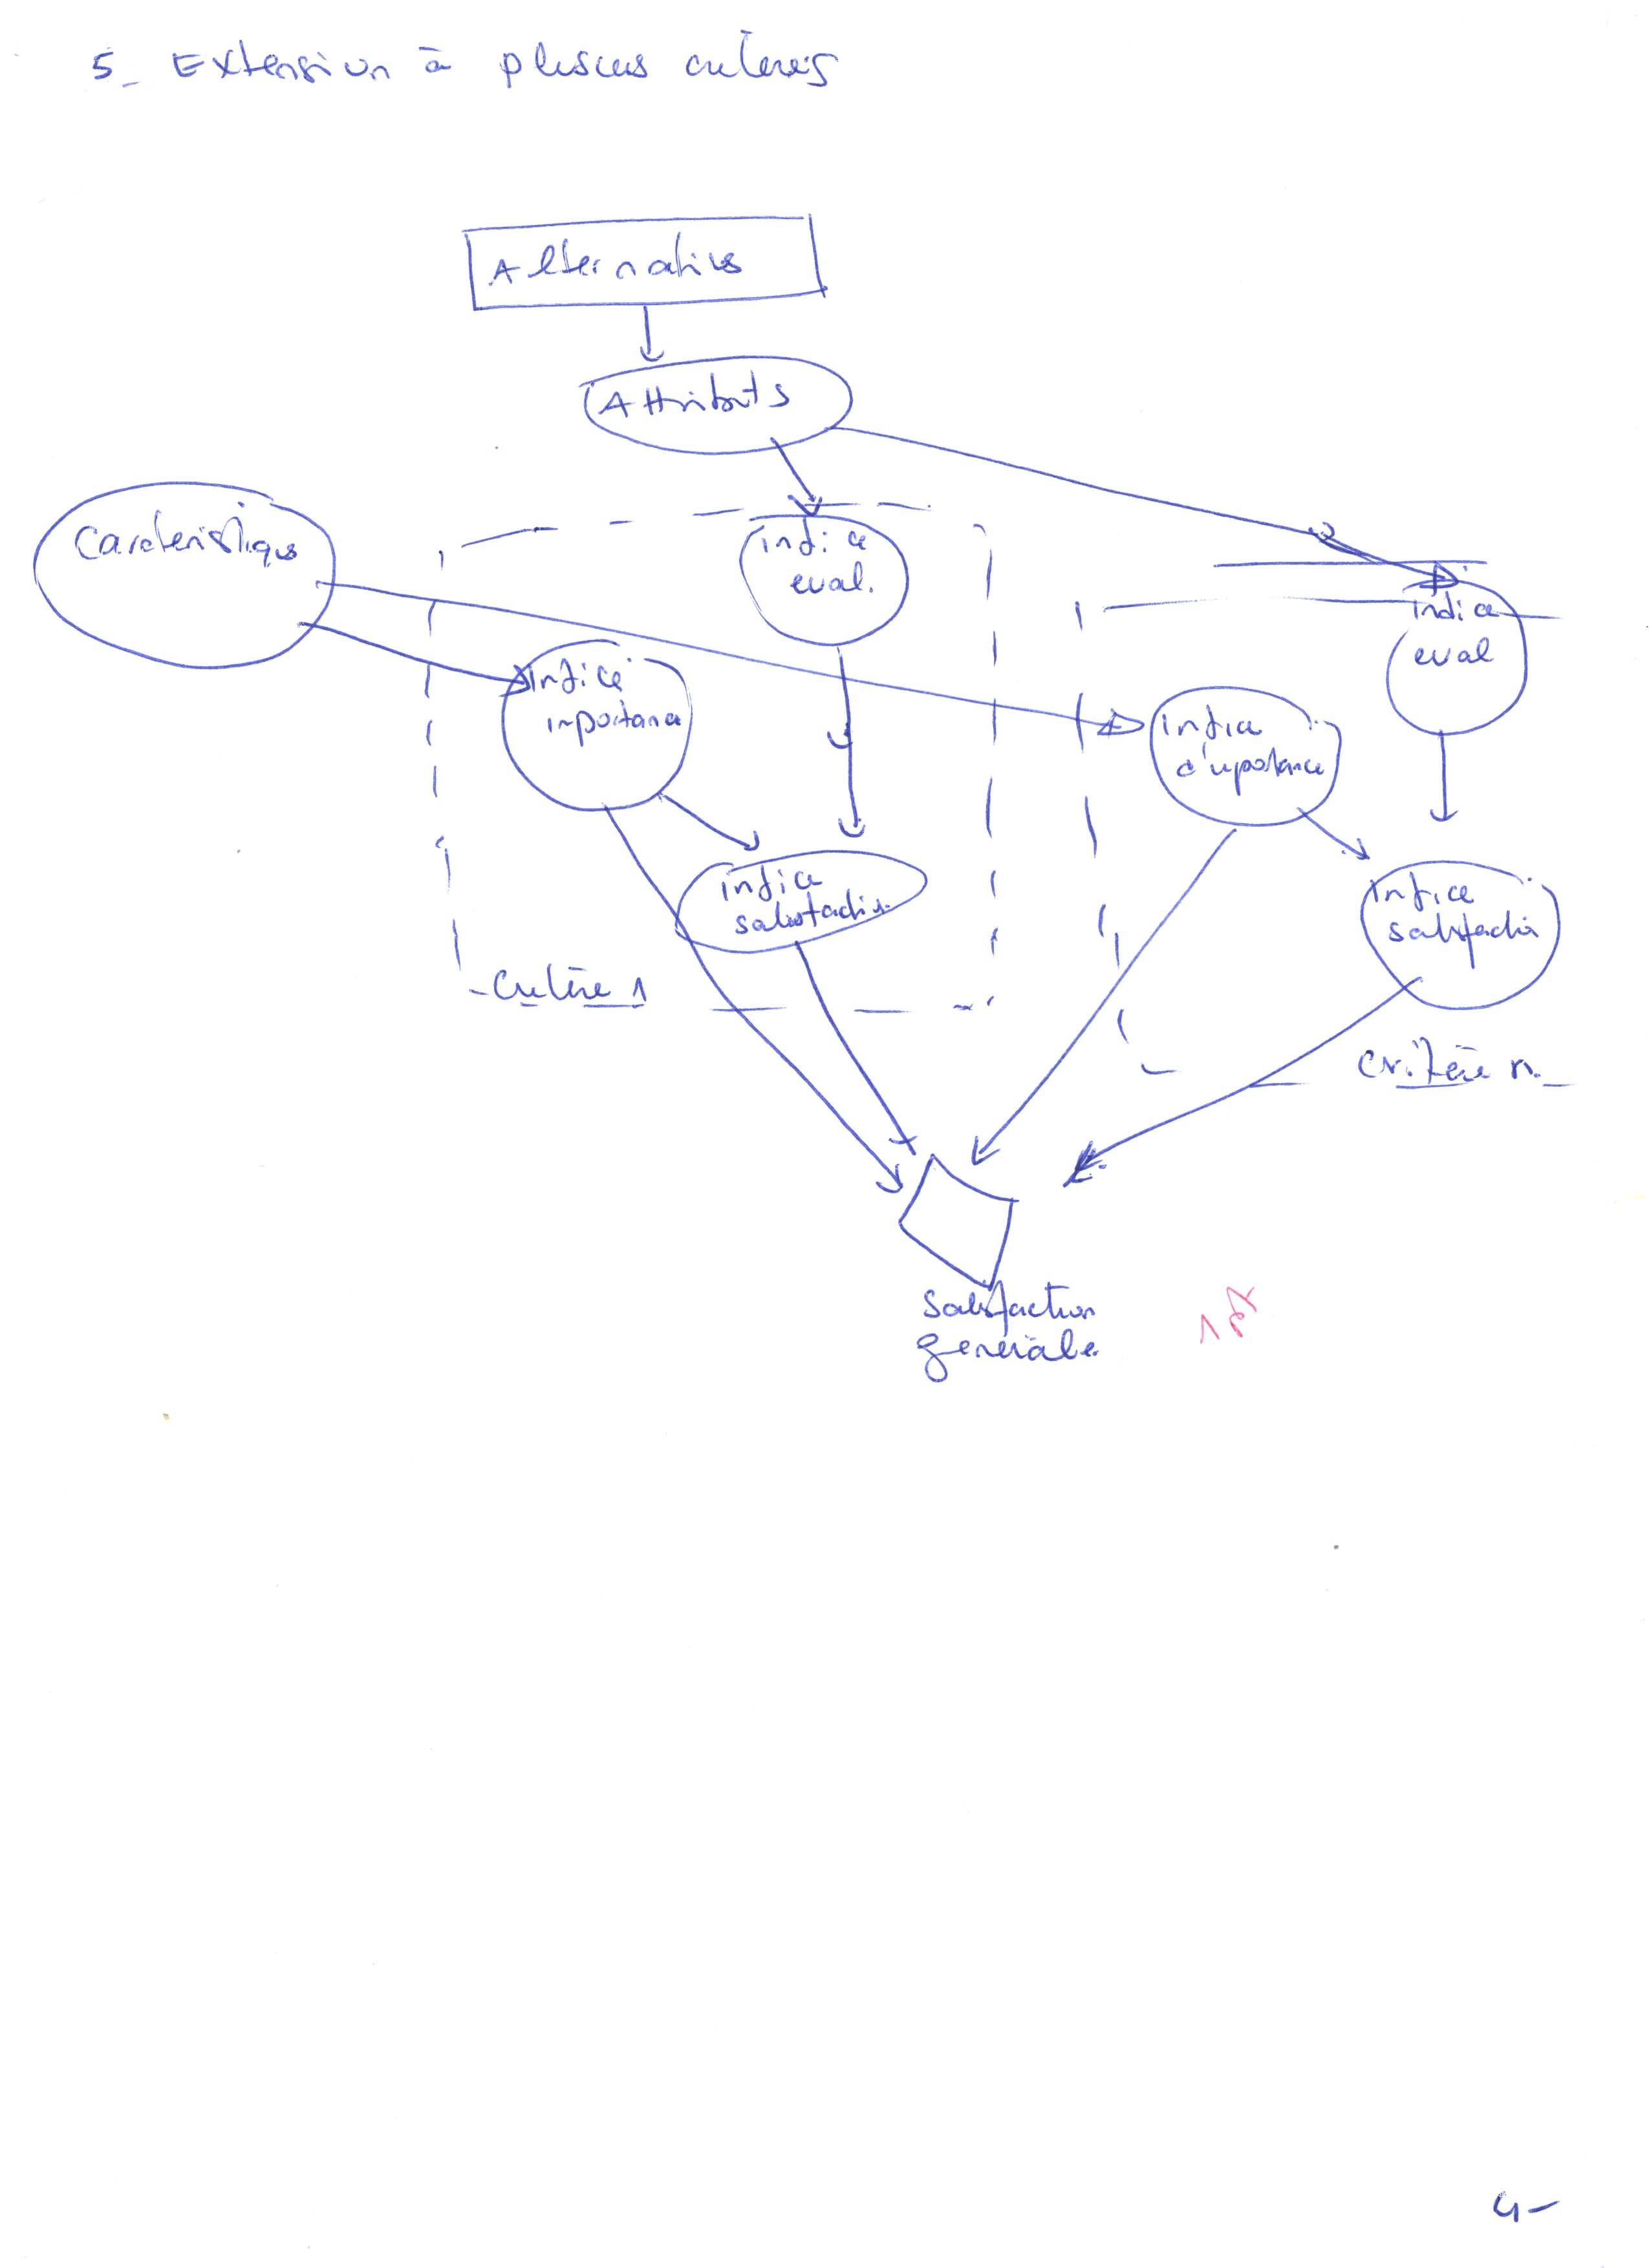 5_ Extension à plusieurs critères
Alternatives
Attributs
Caractéristiques
indice
eval.
Indice
importance
indice
satisfaction
Critère 1
indice
eval
Indice
d'importance
Indice
satisfaction
Critère n.
Satisfaction
générale.
1 pt
4-